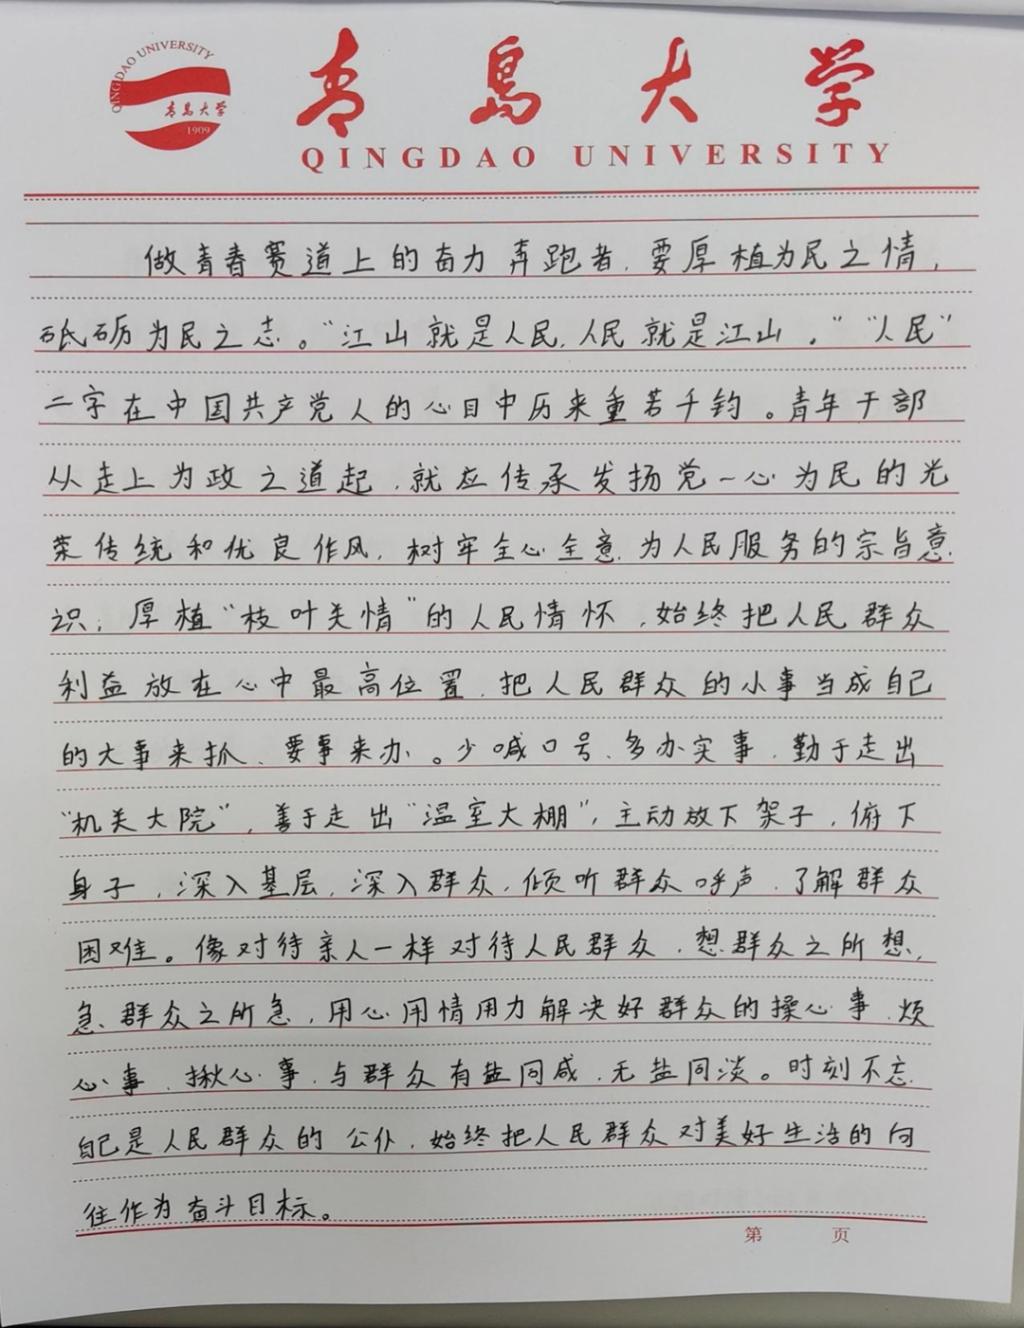 QINGDAO UNIVERSITY
青岛大学
1909
青岛大学
QINGDAO UNIVERSITY
做青春赛道上的奋力奔跑者,要厚植为民之情,
砥砺为民之志。“江山就是人民,人民就是江山。”“人民”
二字在中国共产党人的心目中历来重若千钧。青年干部
从走上为政之道起,就应传承发扬党一心为民的光
荣传统和优良作风,树牢全心全意为人民服务的宗旨意
识;厚植“枝叶关情”的人民情怀,始终把人民群众
利益放在心中最高位置,把人民群众的小事当成自己
的大事来抓、要事来办。少喊口号、多办实事,勤于走出
“机关大院”,善于走出“温室大棚”,主动放下架子,俯下
身子,深入基层,深入群众,倾听群众呼声,了解群众
困难。像对待亲人一样对待人民群众,想群众之所想,
急群众之所急,用心用情用力解决好群众的操心事、烦
心事、揪心事,与群众有盐同咸、无盐同淡。时刻不忘
自己是人民群众的公仆,始终把人民群众对美好生活的向
往作为奋斗目标。
第 页